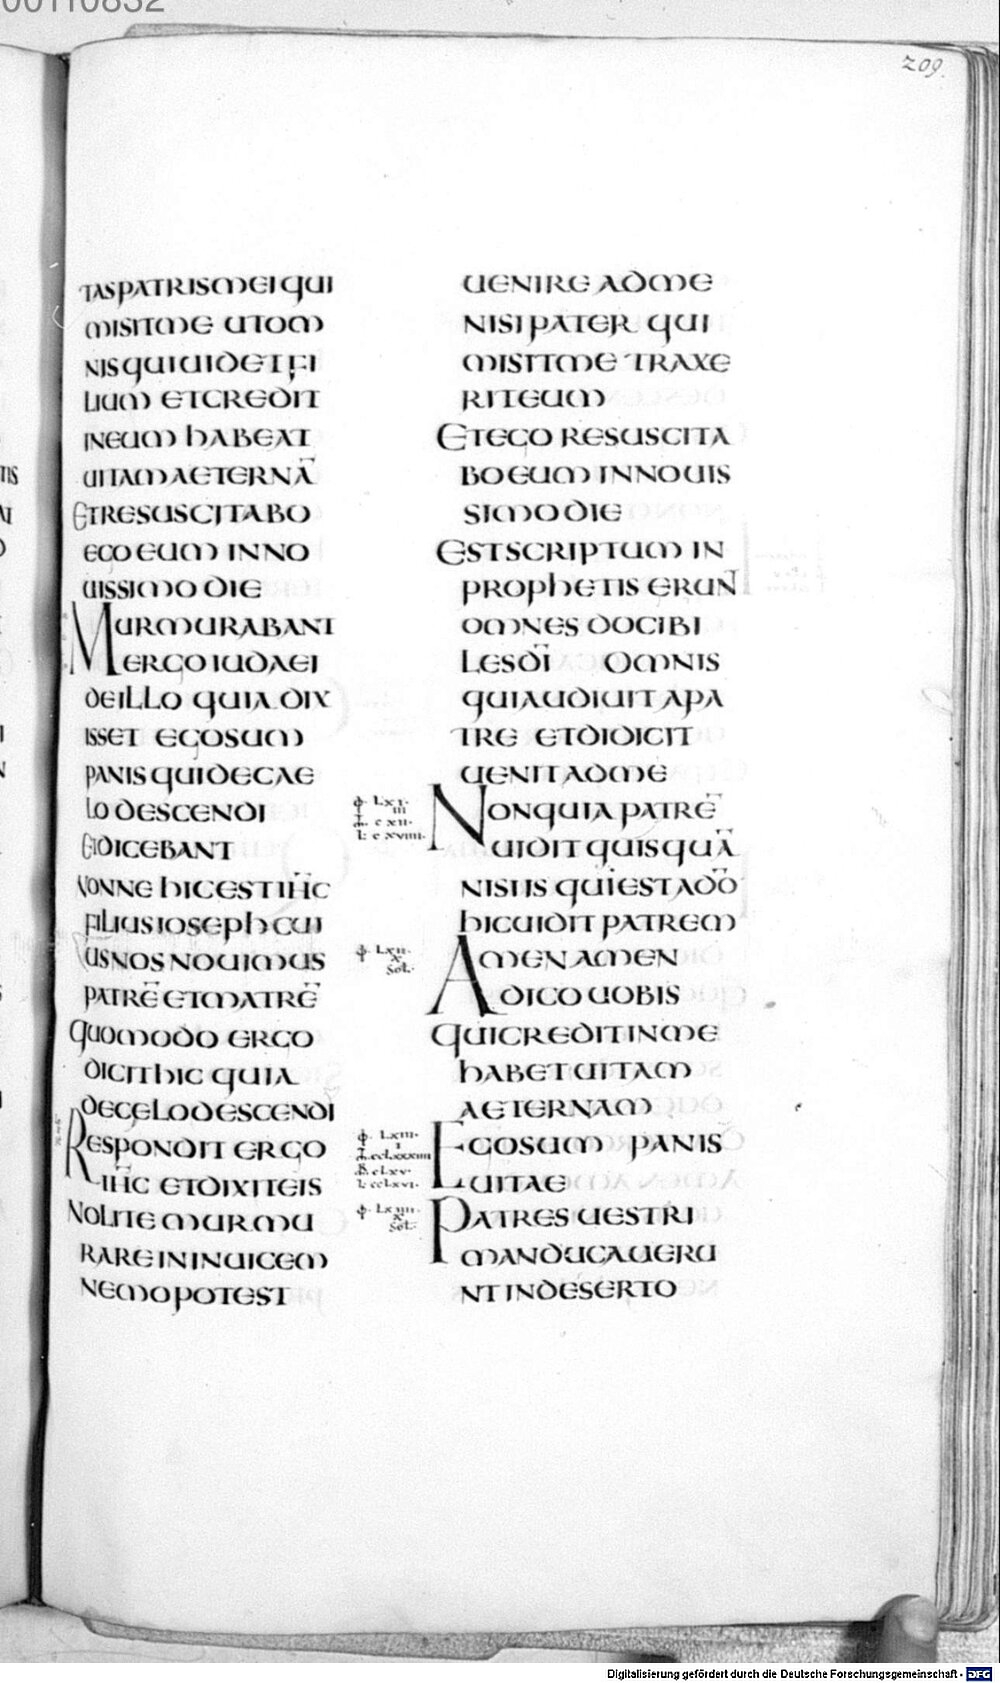 00110832
209.
TASPATRISMEIQUI
MISITME UTOM
NISQUIUIDET FI
LIUM ETCREDIT
INEUM HABEAT
UITAMAETERNĀ
ETRESUSCITABO
EGO EUM INNO
UISSIMO DIE
MURMURABANT
ERGO IUDAEI
DEILLO QUIA DIX
ISSET EGOSUM
PANIS QUIDECAE
LO DESCENDI
ETDICEBANT
NONNE HICESTIH̄C
FILIUSIOSEPH CUI
USNOS NOUIMUS
PATRĒ ETMATRĒ
QUOMODO ERGO
DICITHIC QUIA
DECELODESCENDI
RESPONDIT ERGO
IH̄C ETDIXITEIS
NOLITE MURMU
RARE ININUICEM
NEMOPOTEST
UENIRE ADME
NISI PATER QUI
MISITME TRAXE
RITEUM
ETEGO RESUSCITA
BOEUM INNOUIS
SIMODIE
ESTSCRIPTUM IN
PROPHETIS ERUN̄T
OMNES DOCIBI
LESDĪ OMNIS
QUIAUDIUIT APA
TRE ETDIDICIT
UENITADME
NONQUIA PATRĒ
UIDIT QUISQUĀ
NISIIS QUIESTADŌ
HICUIDIT PATREM
AMENAMEN
DICO UOBIS
QUICREDITINME
HABETUITAM
AETERNAM
EGOSUM PANIS
UITAE
PATRES UESTRI
MANDUCAUERU
NT INDESERTO
Digitalisierung gefördert durch die Deutsche Forschungsgemeinschaft - DFG